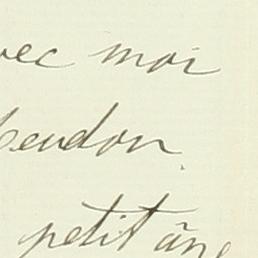 avec moi
Meudon.
petit âne